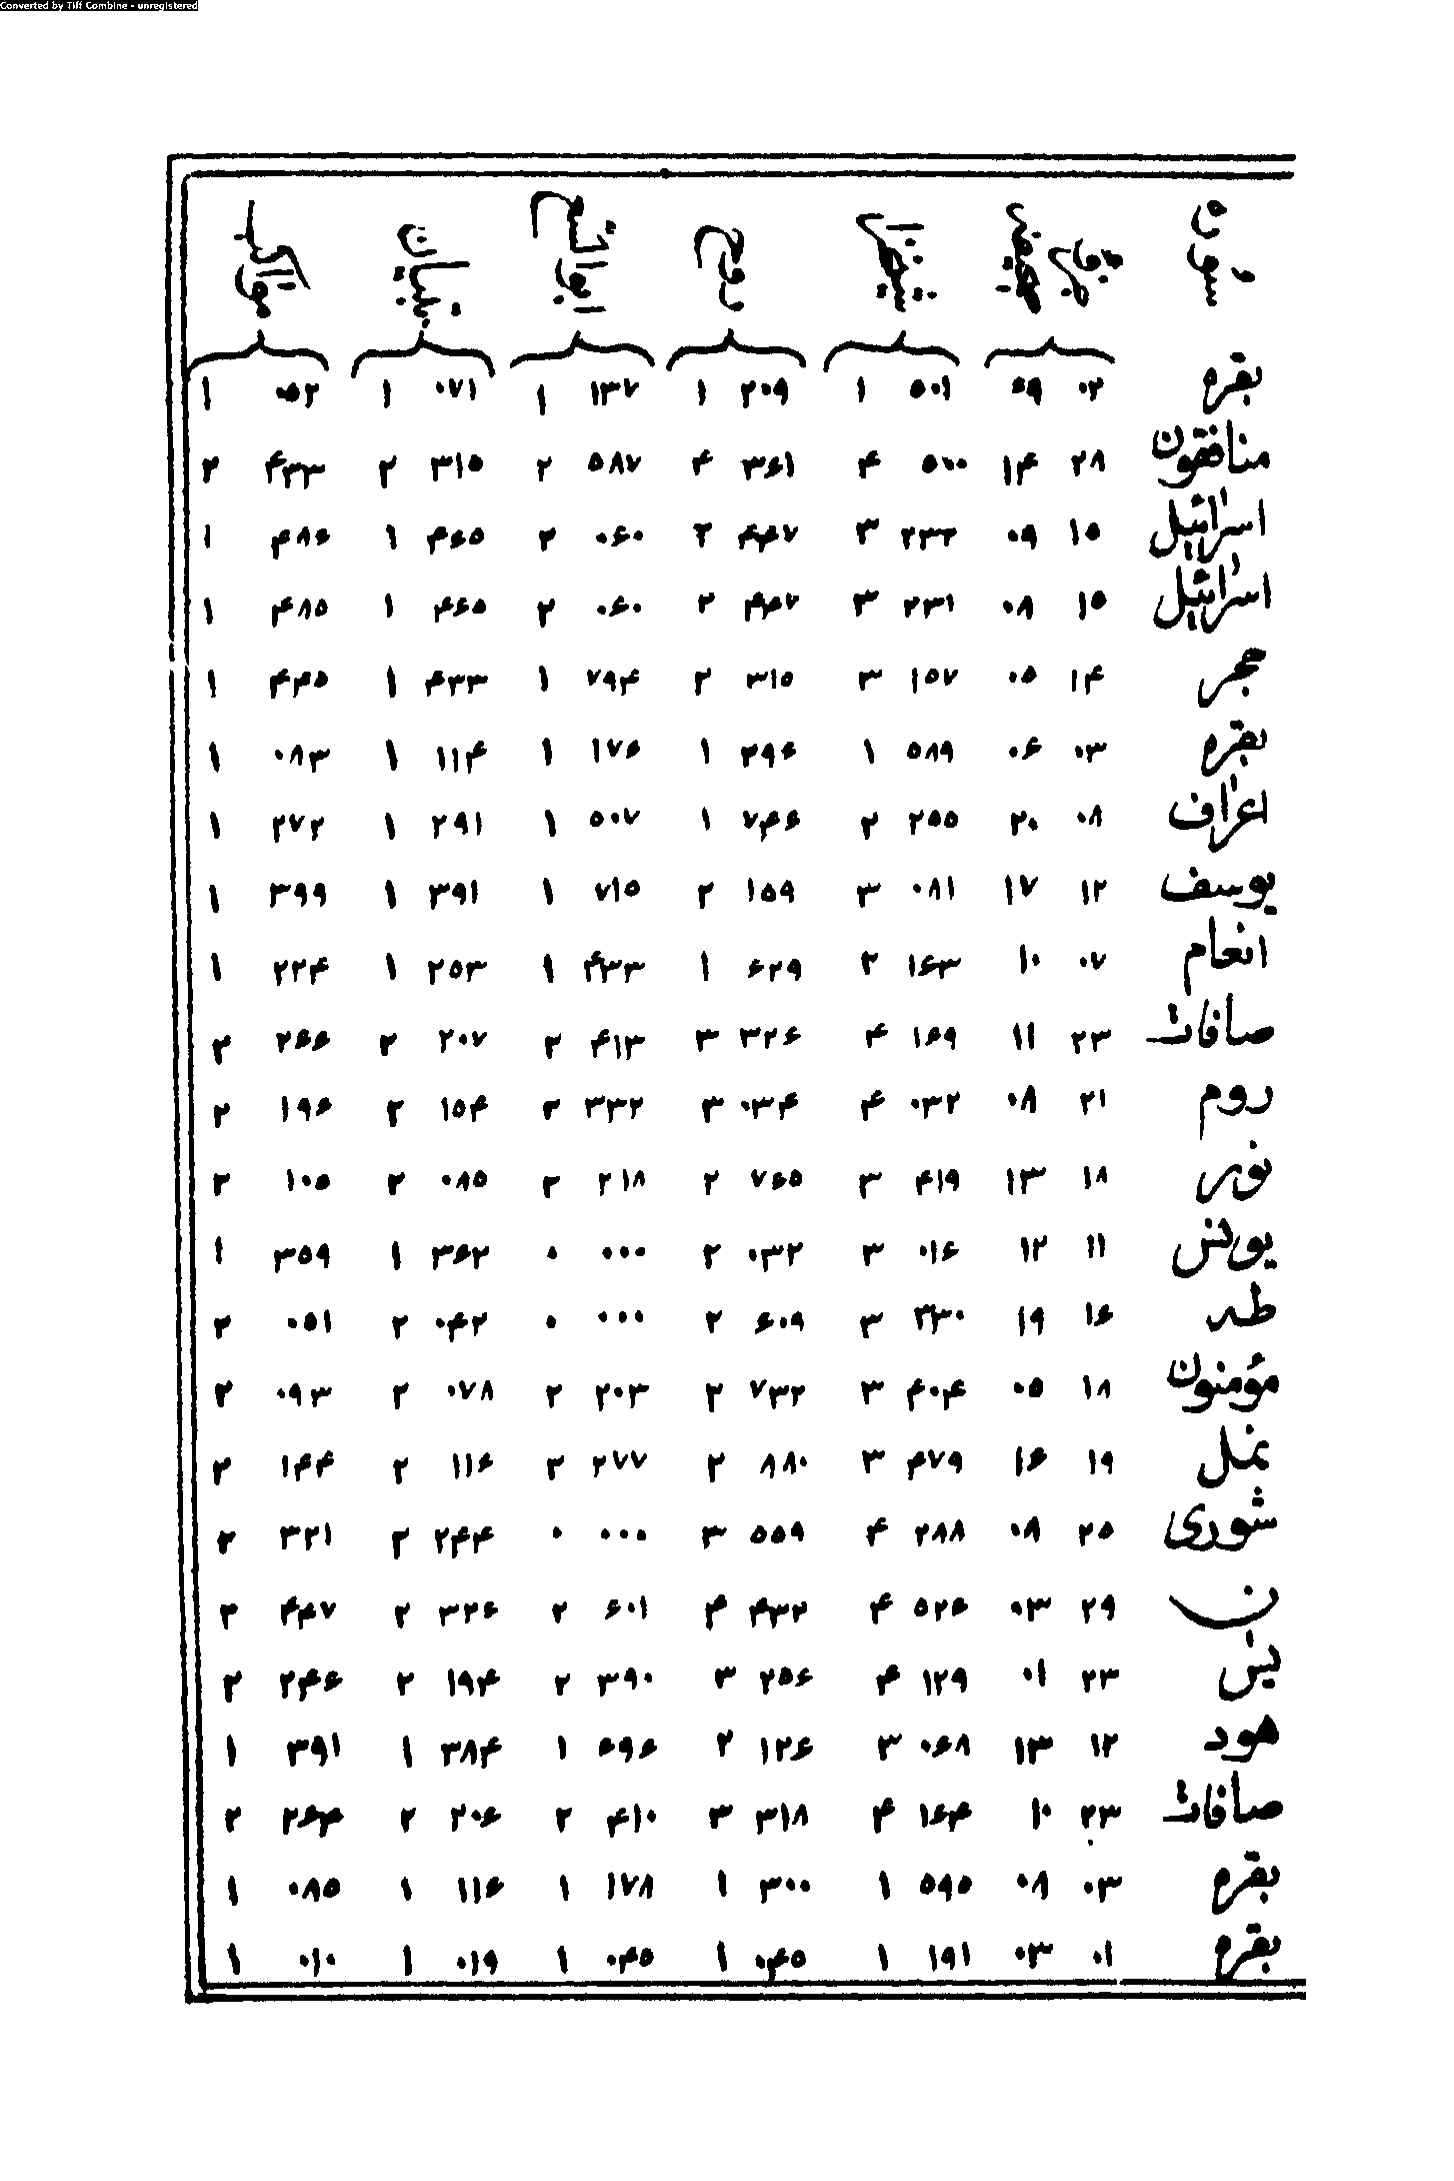 Converted by Tiff Combine - unregistered
بقره ۰۲ ۵۹ ۵۰۱ ۱ ۲۰۹ ۱ ۱۳۷ ۱ ۰۷۱ ۱ ۰۵۲ ۱
منافقون ۲۸ ۱۴ ۵۰۰ ۴ ۳۶۱ ۴ ۵۸۷ ۲ ۳۱۵ ۲ ۴۳۳ ۲
اسرائیل ۱۵ ۰۹ ۲۳۲ ۳ ۴۴۷ ۲ ۰۶۰ ۲ ۴۶۵ ۱ ۴۸۶ ۱
اسرائیل ۱۵ ۰۸ ۲۳۱ ۳ ۴۴۷ ۲ ۰۶۰ ۲ ۴۶۵ ۱ ۴۸۵ ۱
حجر ۱۴ ۰۵ ۱۵۷ ۳ ۳۱۵ ۲ ۷۹۴ ۱ ۴۳۳ ۱ ۴۴۵ ۱
بقره ۰۳ ۰۶ ۵۸۹ ۱ ۲۹۶ ۱ ۱۷۶ ۱ ۱۱۴ ۱ ۰۸۳ ۱
اعراف ۰۸ ۲۰ ۲۵۵ ۲ ۷۴۶ ۱ ۵۰۷ ۱ ۲۹۱ ۱ ۲۷۲ ۱
یوسف ۱۲ ۱۷ ۰۸۱ ۳ ۱۵۹ ۲ ۷۱۵ ۱ ۳۹۱ ۱ ۳۹۹ ۱
انعام ۰۷ ۱۰ ۱۶۳ ۲ ۶۲۹ ۱ ۴۳۳ ۱ ۲۵۳ ۱ ۲۲۴ ۱
صافات ۲۳ ۱۱ ۱۶۹ ۴ ۳۲۶ ۳ ۴۱۳ ۲ ۲۰۷ ۲ ۲۶۶ ۲
روم ۲۱ ۰۸ ۰۳۲ ۴ ۰۳۴ ۳ ۳۳۲ ۲ ۱۵۴ ۲ ۱۹۶ ۲
نور ۱۸ ۱۳ ۴۱۹ ۳ ۷۶۵ ۲ ۲۱۸ ۲ ۰۸۵ ۲ ۱۰۵ ۲
یونس ۱۱ ۱۲ ۰۱۶ ۳ ۰۳۲ ۲ ۰۰۰ ۰ ۳۶۲ ۱ ۳۵۹ ۱
طه ۱۶ ۱۹ ۳۳۰ ۳ ۶۰۹ ۲ ۰۰۰ ۰ ۰۴۲ ۲ ۰۵۱ ۲
مؤمنون ۱۸ ۰۵ ۴۰۴ ۳ ۷۳۲ ۲ ۲۰۳ ۲ ۰۷۸ ۲ ۰۹۳ ۲
نمل ۱۹ ۱۶ ۴۷۹ ۳ ۸۸۰ ۲ ۲۷۷ ۲ ۱۱۶ ۲ ۱۴۴ ۲
شوری ۲۵ ۰۸ ۲۸۸ ۴ ۵۵۹ ۳ ۰۰۰ ۰ ۲۴۴ ۲ ۳۲۱ ۲
ن ۲۹ ۰۳ ۵۲۶ ۴ ۴۳۲ ۴ ۶۰۱ ۲ ۳۲۶ ۲ ۴۴۷ ۲
یس ۲۳ ۰۱ ۱۲۹ ۴ ۲۵۶ ۳ ۳۹۰ ۲ ۱۹۴ ۲ ۲۴۶ ۲
هود ۱۲ ۱۳ ۰۶۸ ۳ ۱۲۶ ۲ ۶۹۶ ۱ ۳۸۴ ۱ ۳۹۱ ۱
صافات ۲۳ ۱۰ ۱۶۴ ۴ ۳۱۸ ۳ ۴۱۰ ۲ ۲۰۶ ۲ ۲۶۴ ۲
بقره ۰۳ ۰۸ ۵۹۵ ۱ ۳۰۰ ۱ ۱۷۸ ۱ ۱۱۶ ۱ ۰۸۵ ۱
بقره ۰۱ ۰۳ ۱۹۱ ۱ ۰۴۵ ۱ ۰۴۵ ۱ ۰۱۹ ۱ ۰۱۰ ۱